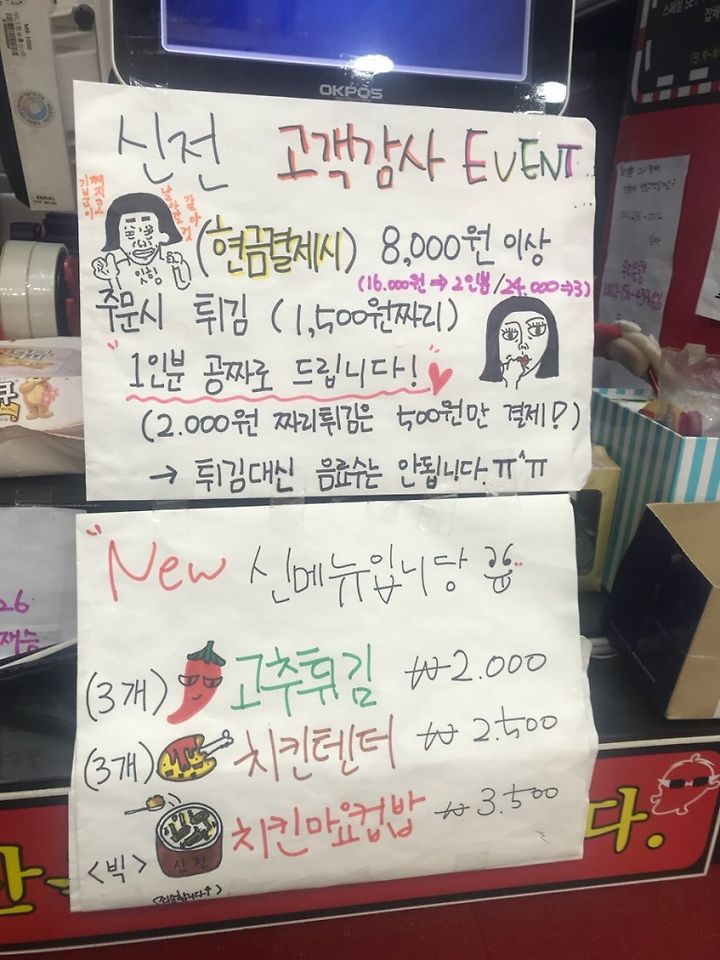 OKPOS
신전 고객감사 EVENT
(현금결제시) 8,000원 이상
(16.000원 → 2인분 / 24.000 → 3)
주문시 튀김 (1,500원짜리)
"1인분 공짜로 드립니다!"
(2.000원 짜리튀김은 500원만 결제!)
→ 튀김대신 음료수는 안됩니다.ㅠ^ㅠ
"New 신메뉴입니당
(3개) 고추튀김 ₩2.000
(3개) 치킨텐더 ₩2.500
<빅> 치킨마요컵밥 ₩3.500
신전
26
다.